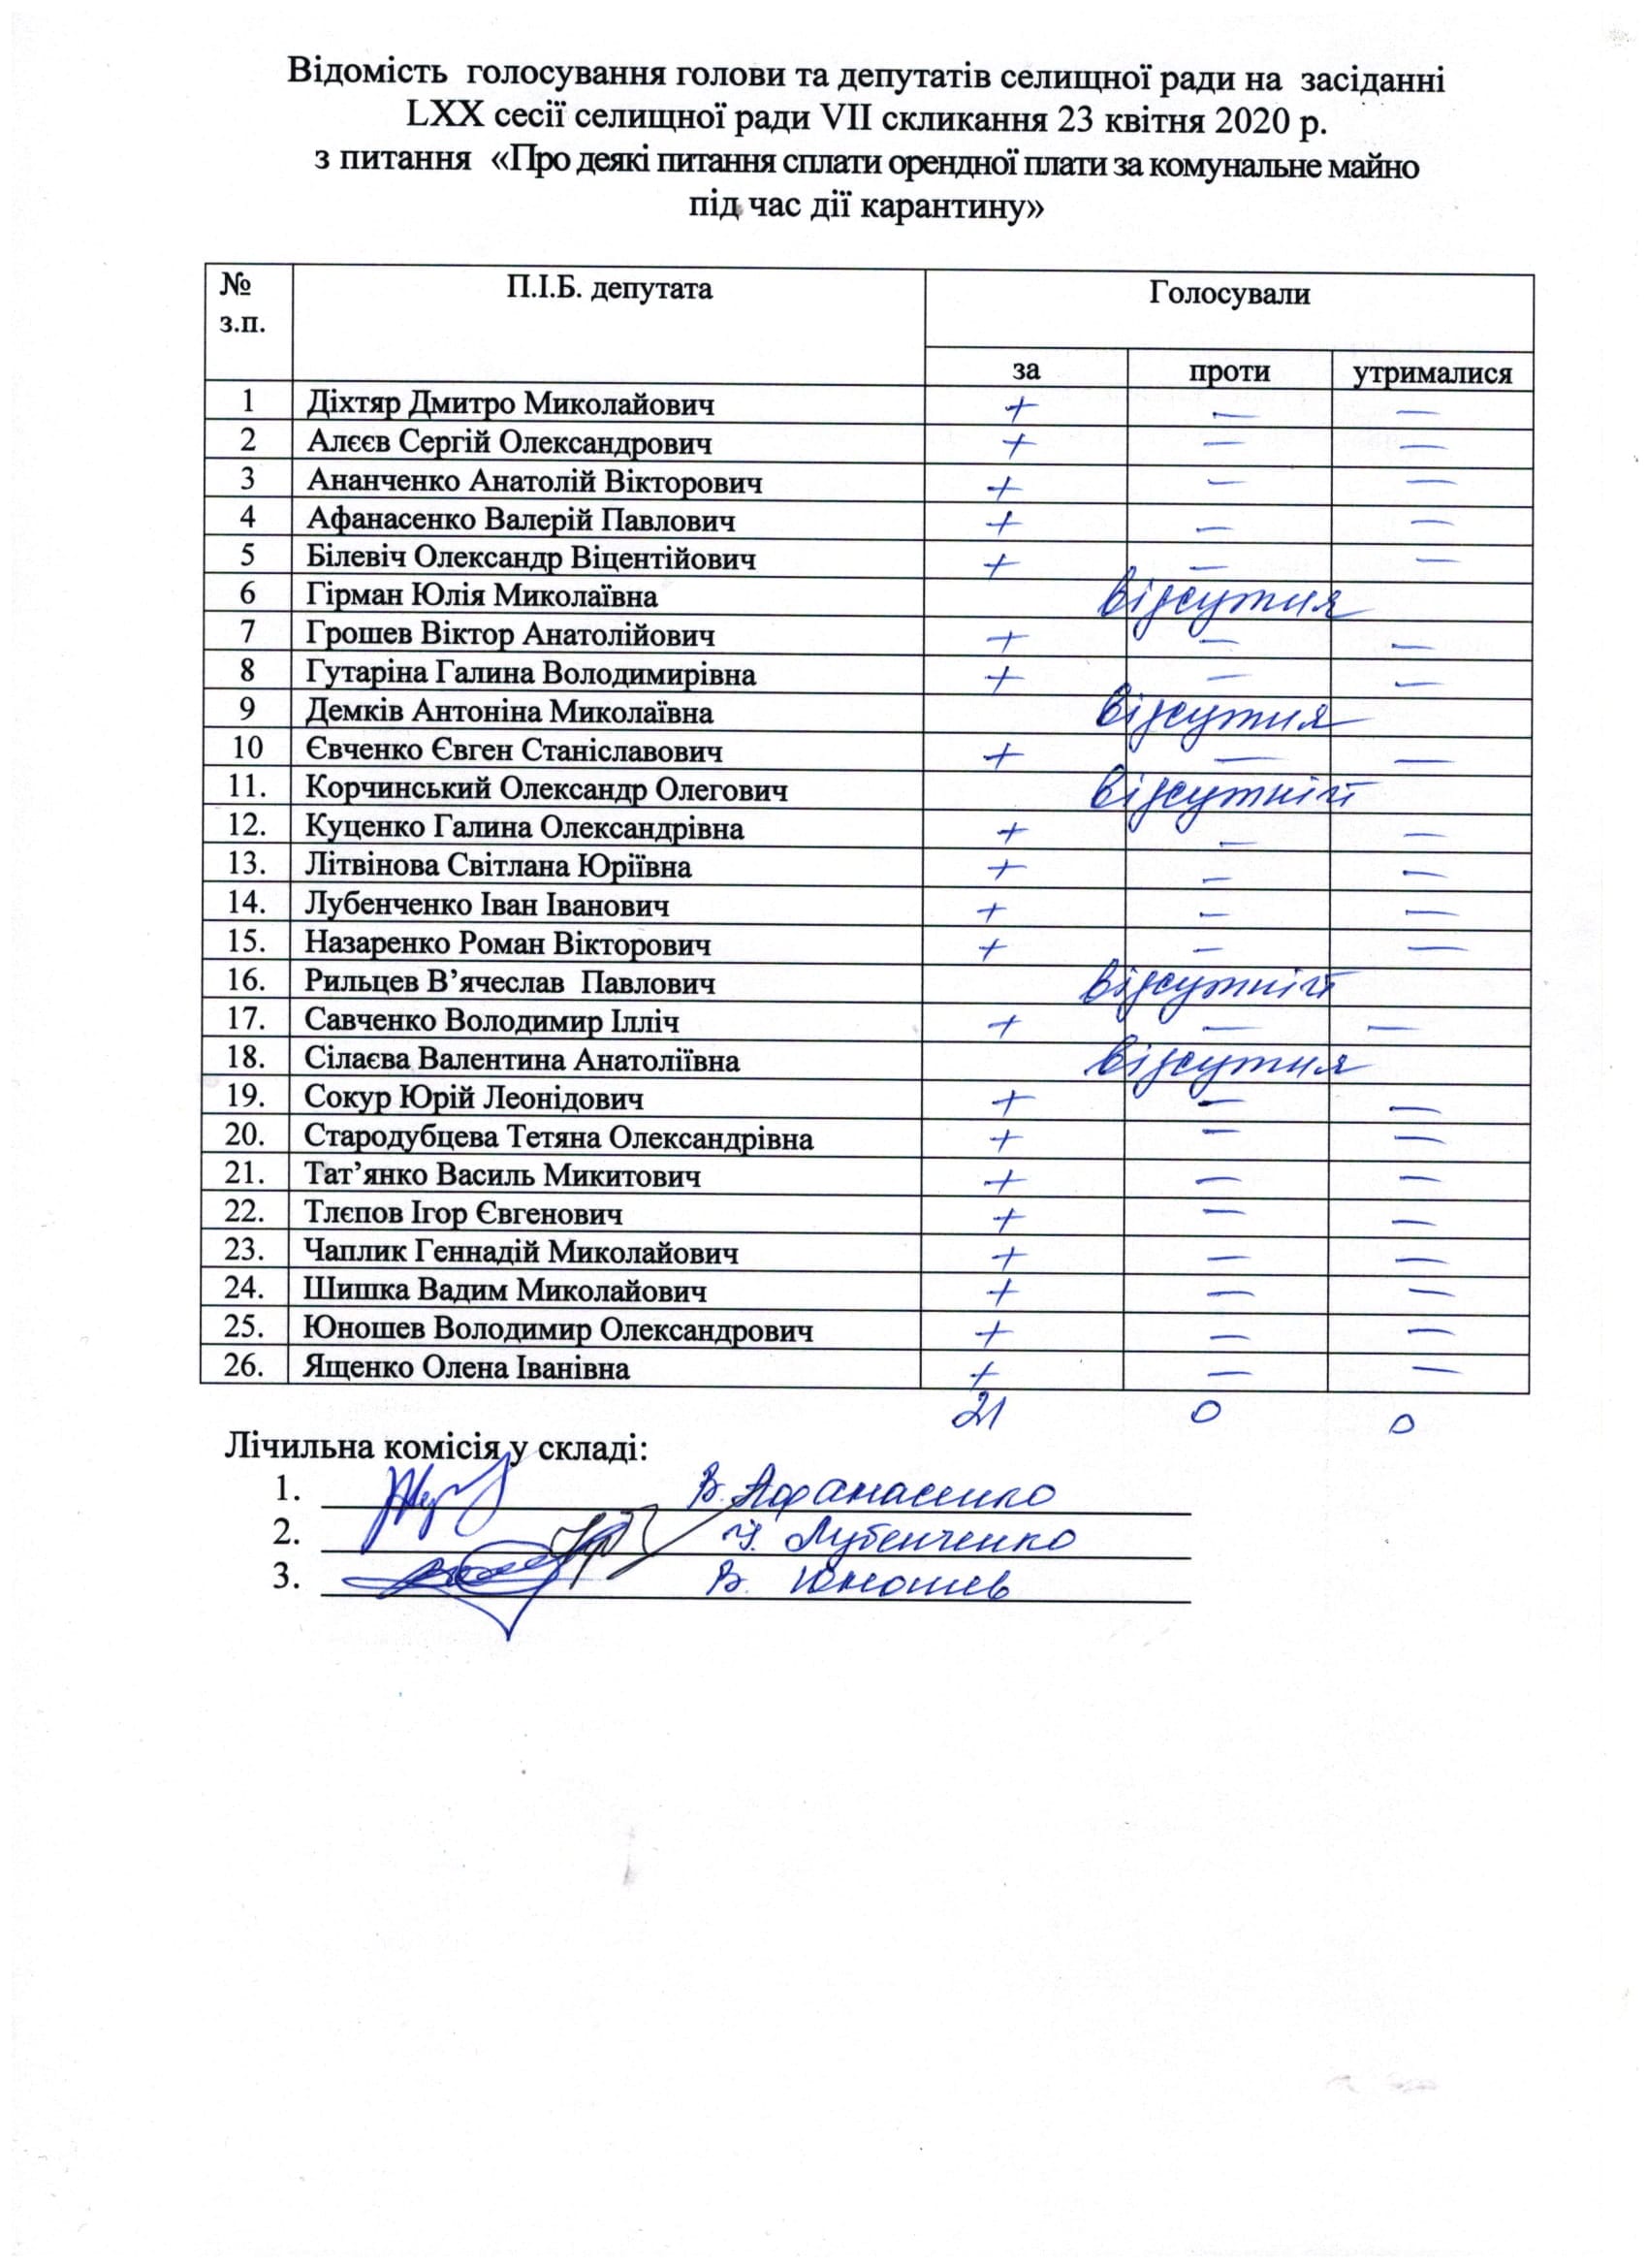 Відомість голосування голови та депутатів селищної ради на засіданні
LXX сесії селищної ради VII скликання 23 квітня 2020 р.
з питання «Про деякі питання сплати орендної плати за комунальне майно
під час дії карантину»
№ з.п. П.І.Б. депутата Голосували
за проти утрималися
1 Діхтяр Дмитро Миколайович + — —
2 Алєєв Сергій Олександрович + — —
3 Ананченко Анатолій Вікторович + — —
4 Афанасенко Валерій Павлович + — —
5 Білевіч Олександр Віцентійович + — —
6 Гірман Юлія Миколаївна відсутня
7 Грошев Віктор Анатолійович + — —
8 Гутаріна Галина Володимирівна + — —
9 Демків Антоніна Миколаївна відсутня
10 Євченко Євген Станіславович + — —
11. Корчинський Олександр Олегович відсутній
12. Куценко Галина Олександрівна + — —
13. Літвінова Світлана Юріївна + — —
14. Лубенченко Іван Іванович + — —
15. Назаренко Роман Вікторович + — —
16. Рильцев В’ячеслав Павлович відсутній
17. Савченко Володимир Ілліч + — —
18. Сілаєва Валентина Анатоліївна відсутня
19. Сокур Юрій Леонідович + — —
20. Стародубцева Тетяна Олександрівна + — —
21. Тат’янко Василь Микитович + — —
22. Тлєпов Ігор Євгенович + — —
23. Чаплик Геннадій Миколайович + — —
24. Шишка Вадим Миколайович + — —
25. Юношев Володимир Олександрович + — —
26. Ященко Олена Іванівна + — —
21 0 0
Лічильна комісія у складі:
1. В. Афанасенко
2. І. Лубенченко
3. В. Юношев